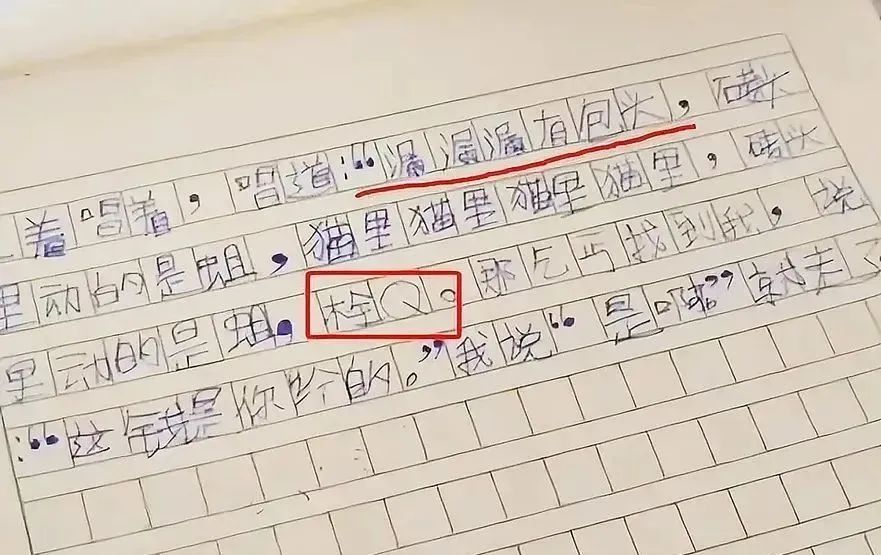 着唱着，唱道：“漏漏漏有包头，砖头
里动的是蛆，猫里猫里猫里猫里，砖头
里动的是蛆，栓Q。那乞丐找到我，说
：“这钱是你给的。”我说“是啊”就走了